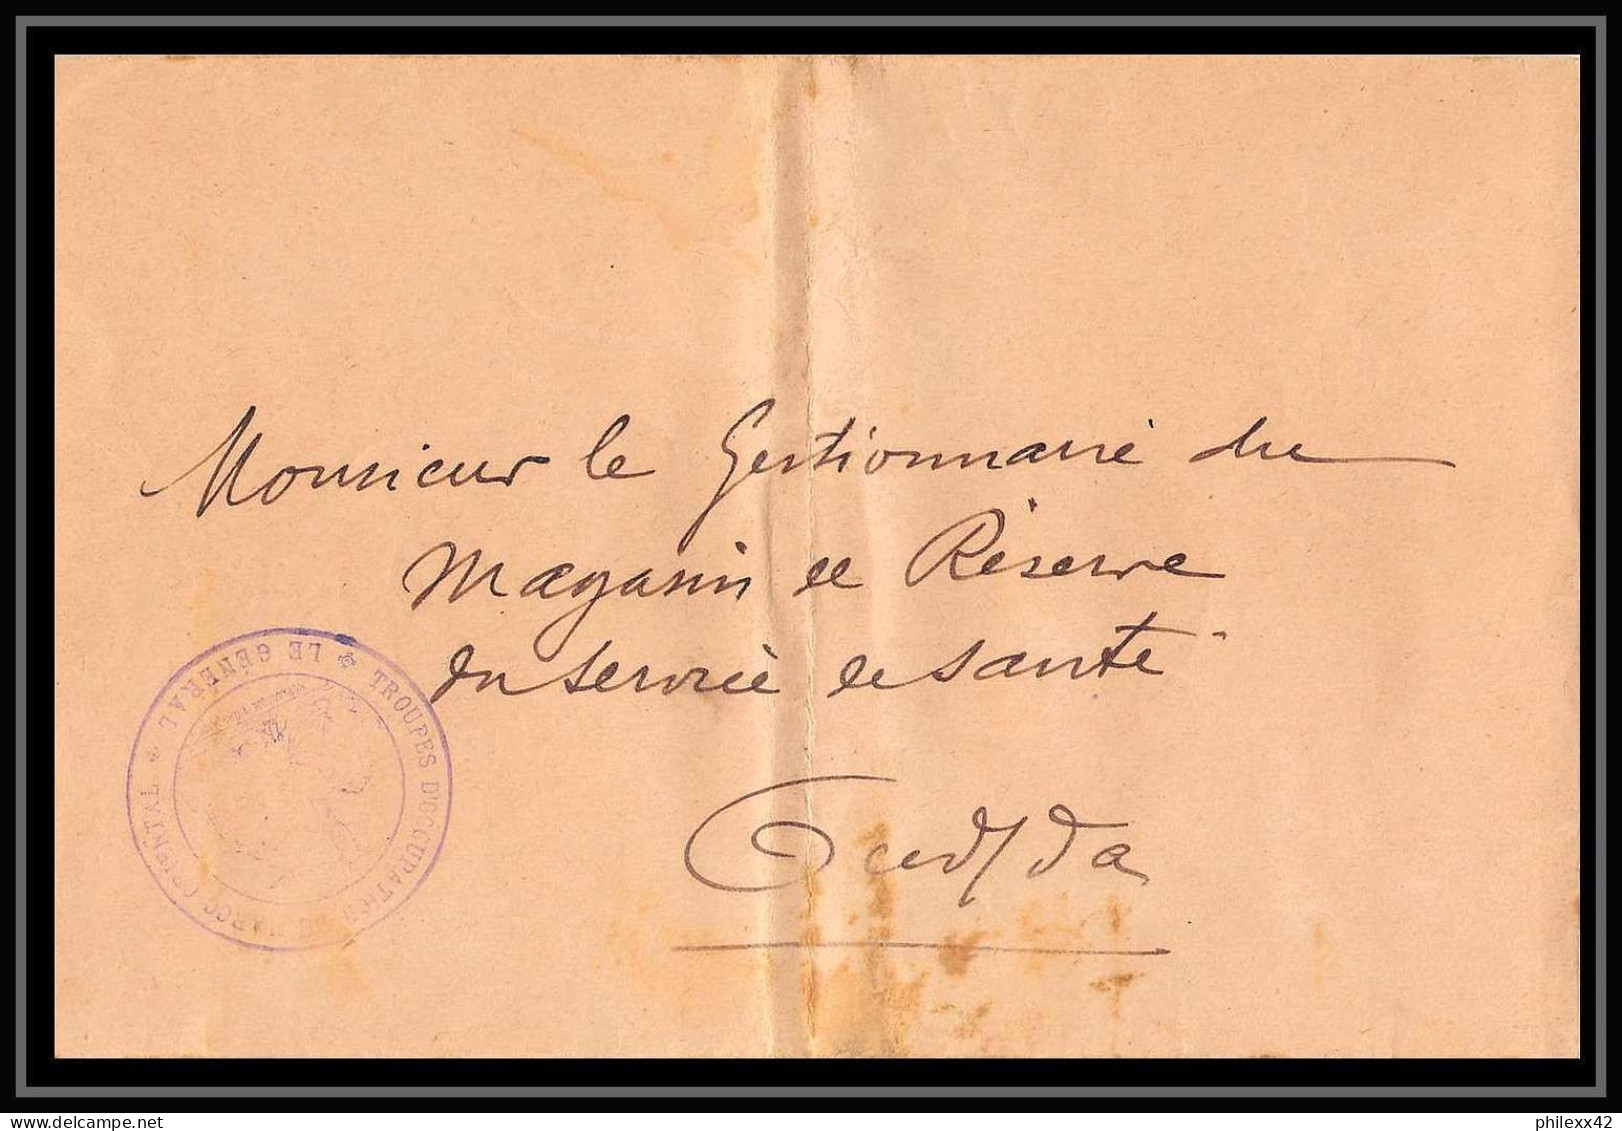 Monsieur le Gestionnaire du
Magasin de Réserve
du service de santé
Oudjda
TROUPES D'OCCUPATION DU MAROC ORIENTAL
LE GÉNÉRAL
delcampe.net
philexx42